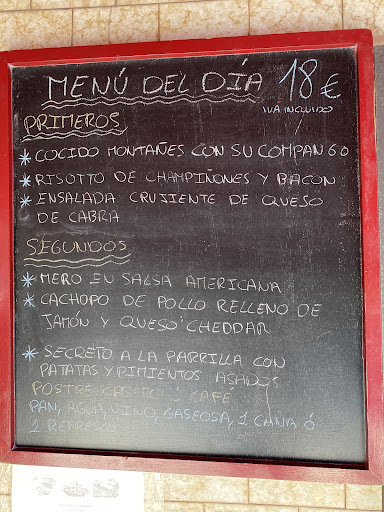 MENÚ DEL DÍA 18€
IVA INCLUIDO
PRIMEROS
* COCIDO MONTAÑES CON SU COMPANGO
* RISOTTO DE CHAMPIÑONES Y BACON
* ENSALADA CRUJIENTE DE QUESO
DE CABRA
SEGUNDOS
* MERO EN SALSA AMERICANA
* CACHOPO DE POLLO RELLENO DE
JAMÓN Y QUESO CHEDDAR
* SECRETO A LA PARRILLA CON
PATATAS Y PIMIENTOS ASADOS
POSTRE CAFÉ
PAN, AGUA, VINO, GASEOSA, 1 CAÑA Ó
1 REFRESCO